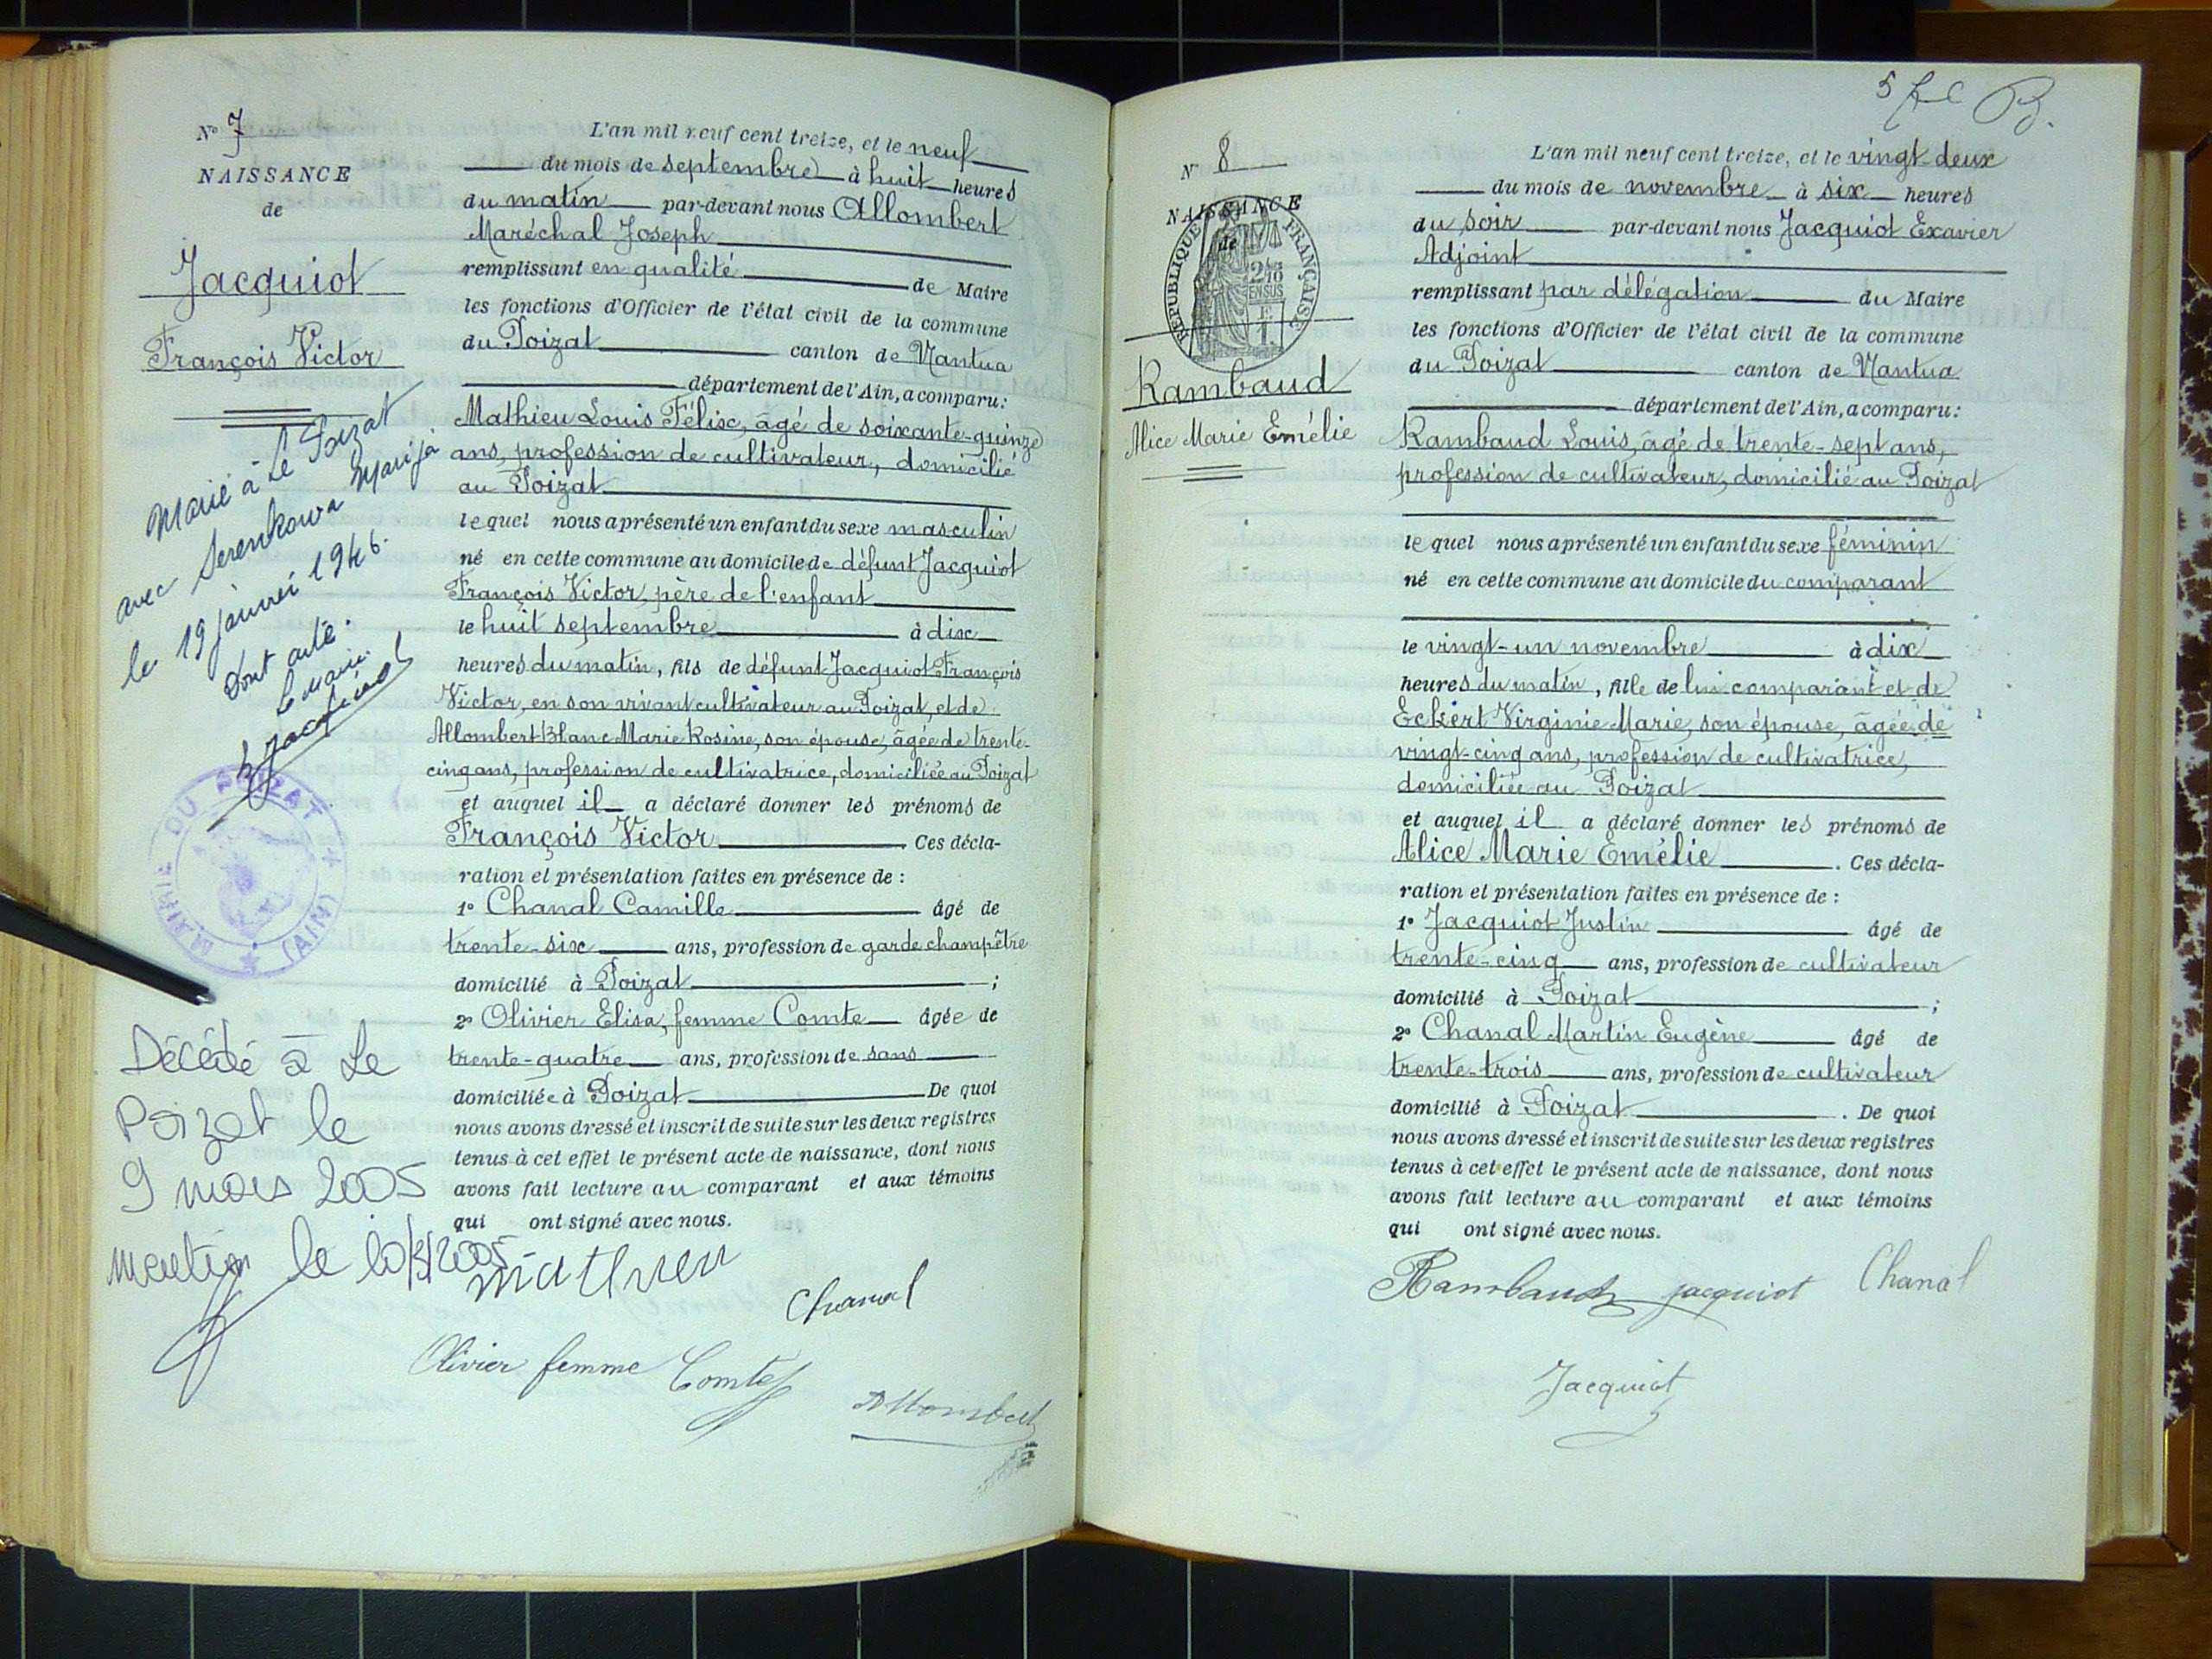 N° 7
NAISSANCE
de
Jacquiot
François Victor
Marié à Le Poizat
avec Serenkowa Marija
le 19 janvier 1946.
Dont acte.
Le maire.
Jacquiot
MAIRIE DU POIZAT
(AIN)
Décédé à Le
Poizat le
9 mars 2005
mention le 10/3/2005
L'an mil neuf cent treize, et le neuf
du mois de septembre à huit heures
du matin par-devant nous Allombert
Maréchal Joseph
remplissant en qualité de Maire
les fonctions d'Officier de l'état civil de la commune
du Poizat canton de Nantua
département de l'Ain, a comparu:
Mathieu Louis Félix, âgé de soixante-quinze
ans, profession de cultivateur, domicilié
au Poizat
lequel nous a présenté un enfant du sexe masculin
né en cette commune au domicile de défunt Jacquiot
François Victor, père de l'enfant
le huit septembre à dix
heures du matin, fils de défunt Jacquiot François
Victor, en son vivant cultivateur au Poizat, et de
Allombert Blanc Marie Rosine, son épouse, âgée de trente-
cinq ans, profession de cultivatrice, domiciliée au Poizat
et auquel il a déclaré donner les prénoms de
François Victor. Ces décla-
ration et présentation faites en présence de :
1° Chanal Camille âgé de
trente-six ans, profession de garde champêtre
domicilié à Poizat ;
2° Olivier Elisa, femme Comte âgée de
trente-quatre ans, profession de sans
domiciliée à Poizat De quoi
nous avons dressé et inscrit de suite sur les deux registres
tenus à cet effet le présent acte de naissance, dont nous
avons fait lecture au comparant et aux témoins
qui ont signé avec nous.
Mathieu
Chanal
Olivier femme Comte
Allombert
5
N° 8
NAISSANCE
de
RÉPUBLIQUE FRANÇAISE
Rambaud
Alice Marie Emélie
L'an mil neuf cent treize, et le vingt-deux
du mois de novembre à six heures
du soir par-devant nous Jacquiot Exavier
Adjoint
remplissant par délégation du Maire
les fonctions d'Officier de l'état civil de la commune
du Poizat canton de Nantua
département de l'Ain, a comparu:
Rambaud Louis, âgé de trente-sept ans,
profession de cultivateur, domicilié au Poizat
lequel nous a présenté un enfant du sexe féminin
né en cette commune au domicile du comparant
le vingt-un novembre à dix
heures du matin, fille de lui comparant et de
Eckert Virginie Marie, son épouse, âgée de
vingt-cinq ans, profession de cultivatrice,
domiciliée au Poizat
et auquel il a déclaré donner les prénoms de
Alice Marie Emélie. Ces décla-
ration et présentation faites en présence de :
1° Jacquiot Justin âgé de
trente-cinq ans, profession de cultivateur
domicilié à Poizat ;
2° Chanal Martin Eugène âgé de
trente-trois ans, profession de cultivateur
domicilié à Poizat. De quoi
nous avons dressé et inscrit de suite sur les deux registres
tenus à cet effet le présent acte de naissance, dont nous
avons fait lecture au comparant et aux témoins
qui ont signé avec nous.
Rambaud Jacquiot Chanal
Jacquiot